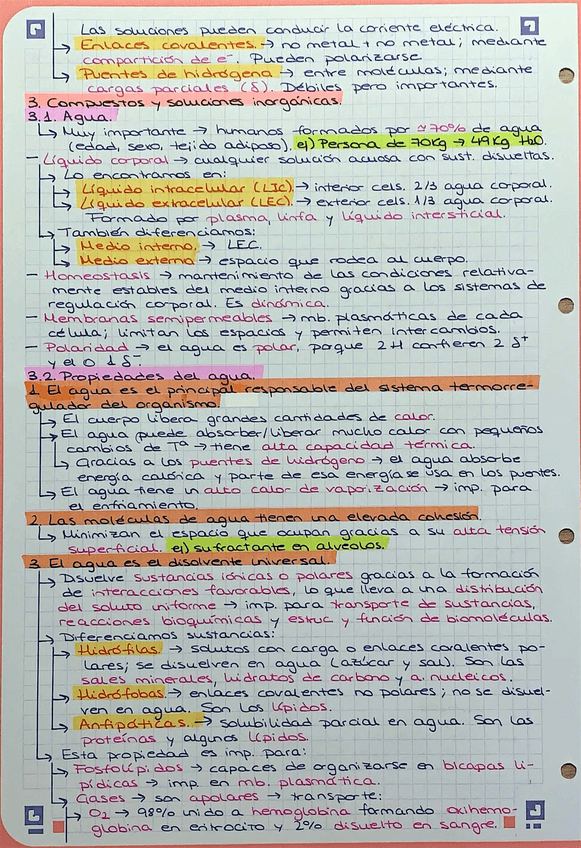 Las soluciones pueden conducir la corriente eléctrica.
↳ Enlaces covalentes. → no metal + no metal; mediante
compartición de e⁻. Pueden polarizarse.
↳ Puentes de hidrógeno → entre moléculas; mediante
cargas parciales (δ). Débiles pero importantes.
3. Compuestos y soluciones inorgánicas.
3.1. Agua.
↳ Muy importante → humanos formados por ≃70% de agua
(edad, sexo, tejido adiposo). ej) Persona de 70Kg → 49Kg H₂O.
— Líquido corporal → cualquier solución acuosa con sust. disueltas.
↳ Lo encontramos en:
↳ Líquido intracelular (LIC). → interior cels. 2/3 agua corporal.
↳ Líquido extracelular (LEC). → exterior cels. 1/3 agua corporal.
Formado por plasma, linfa y líquido intersticial.
↳ También diferenciamos:
↳ Medio interno. → LEC.
↳ Medio externo → espacio que rodea al cuerpo.
— Homeostasis → mantenimiento de las condiciones relativa-
mente estables del medio interno gracias a los sistemas de
regulación corporal. Es dinámica.
— Membranas semipermeables → mb. plasmáticas de cada
célula; limitan los espacios y permiten intercambios.
— Polaridad → el agua es polar, porque 2 H confieren 2 δ⁺
y el O 1 δ⁻.
3.2. Propiedades del agua.
1. El agua es el principal responsable del sistema termorre-
gulador del organismo.
↳ El cuerpo libera grandes cantidades de calor.
↳ El agua puede absorber/liberar mucho calor con pequeños
cambios de Tª → tiene alta capacidad térmica.
↳ Gracias a los puentes de hidrógeno → el agua absorbe
energía calórica y parte de esa energía se usa en los puentes.
↳ El agua tiene un alto calor de vaporización → imp. para
el enfriamiento.
2. Las moléculas de agua tienen una elevada cohesión.
↳ Minimizan el espacio que ocupan gracias a su alta tensión
superficial. ej) sufractante en alvéolos.
3. El agua es el disolvente universal.
↳ Dsuelve sustancias iónicas o polares gracias a la formación
de interacciones favorables, lo que lleva a una distribución
del soluto uniforme → imp. para transporte de sustancias,
reacciones bioquímicas y estruc y función de biomoléculas.
↳ Diferenciamos sustancias:
↳ Hidrófilas. → solutos con carga o enlaces covalentes po-
lares; se disuelven en agua (azúcar y sal). Son las
sales minerales, hidratos de carbono y a. nucleicos.
↳ Hidrófobas → enlaces covalentes no polares; no se disuel-
ven en agua. Son los lípidos.
↳ Anfipáticas. → solubilidad parcial en agua. Son las
proteínas y algunos lípidos.
↳ Esta propiedad es imp. para:
↳ Fosfolípidos → capaces de organizarse en bicapas li-
pídicas → imp. en mb. plasmática.
↳ Gases → son apolares → transporte:
↳ O₂ → 98% unido a hemoglobina formando oxihemo-
globina en eritrocito y 2% disuelto en sangre.